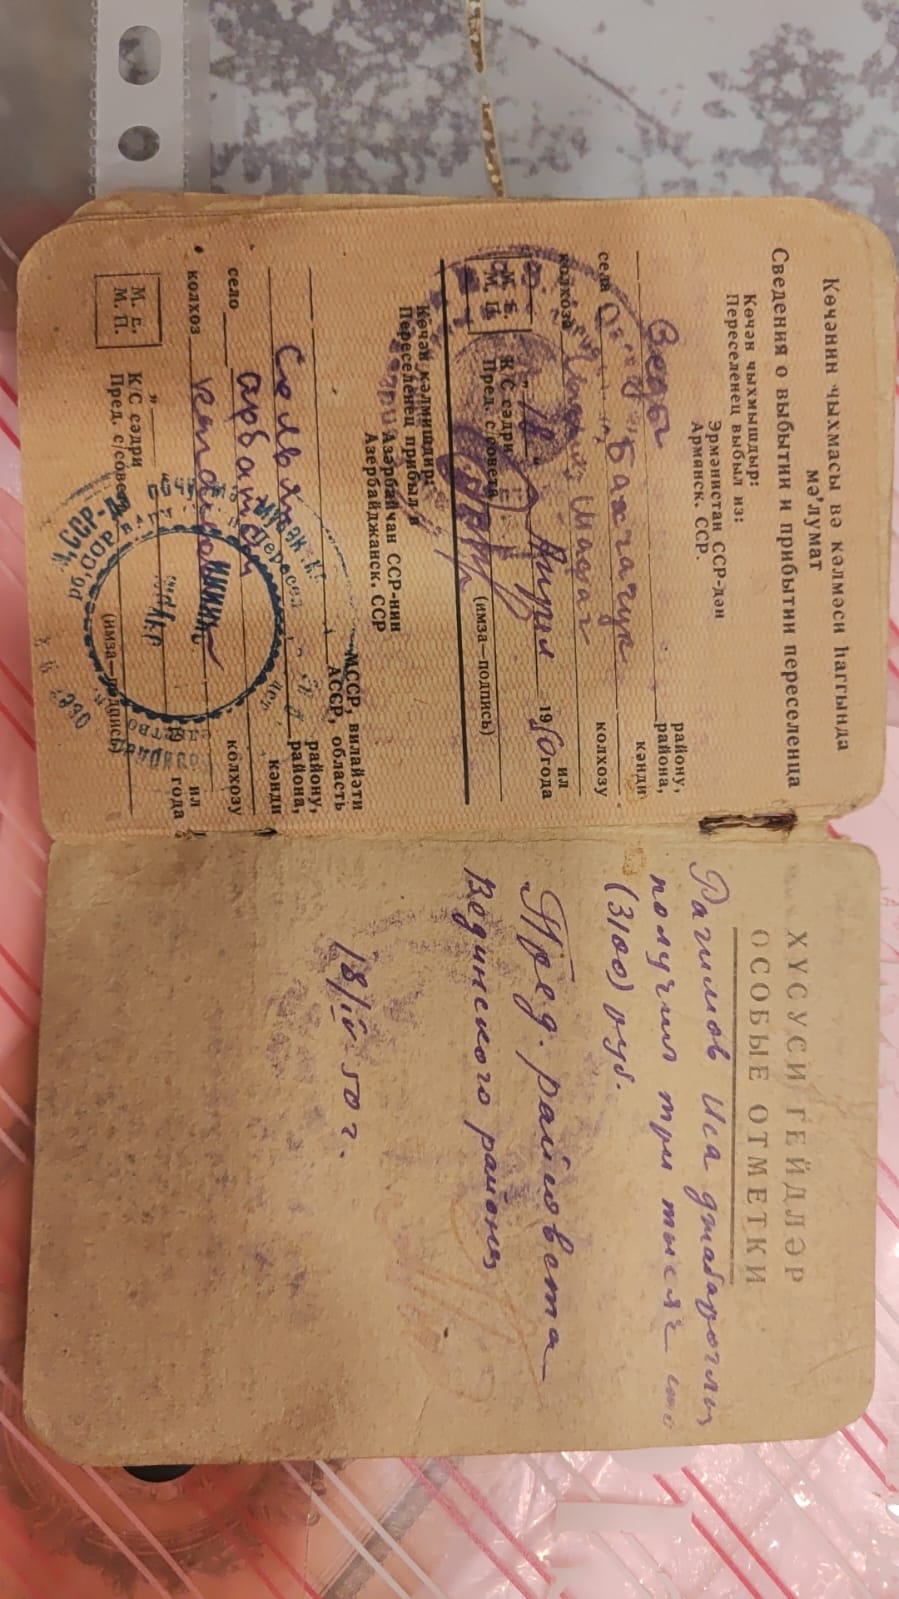 Көчәнин чыхмасы вә кәлмәси һаггында
мә'лумат
Сведения о выбытии и прибытии переселенца
Көчән чыхмышдыр:
Переселенец выбыл из:
Эрмәнистан ССР-дән
Армянск. ССР.
району,
Веды района,
кәнди
села Бахчачук
колхозу
колхоза Шафаг
ил
„18“ Апрел 1950 года
М. Е. К/С сәдри
М. П. Пред. с/совета (имза—подпись)
Көчән кәлмишдир:
Переселенец прибыл в
Азәрбайчан ССР-нин
Азербайджанск. ССР
МССР, вилайәти
АССР, область
району,
Сальян района,
кәнди
село Арбатан
колхозу
колхоз
ил
„ года
М. Е. К/С сәдри
М. П. Пред. с/совета (имза—подпись)
ХҮСУСИ ГЕЙДЛӘР
ОСОБЫЕ ОТМЕТКИ
Рагимов Иса джабароглы
получил три тысяч сто
(3100) руб.
Пред. райсовета
Вединского района
18/IV 50 г.